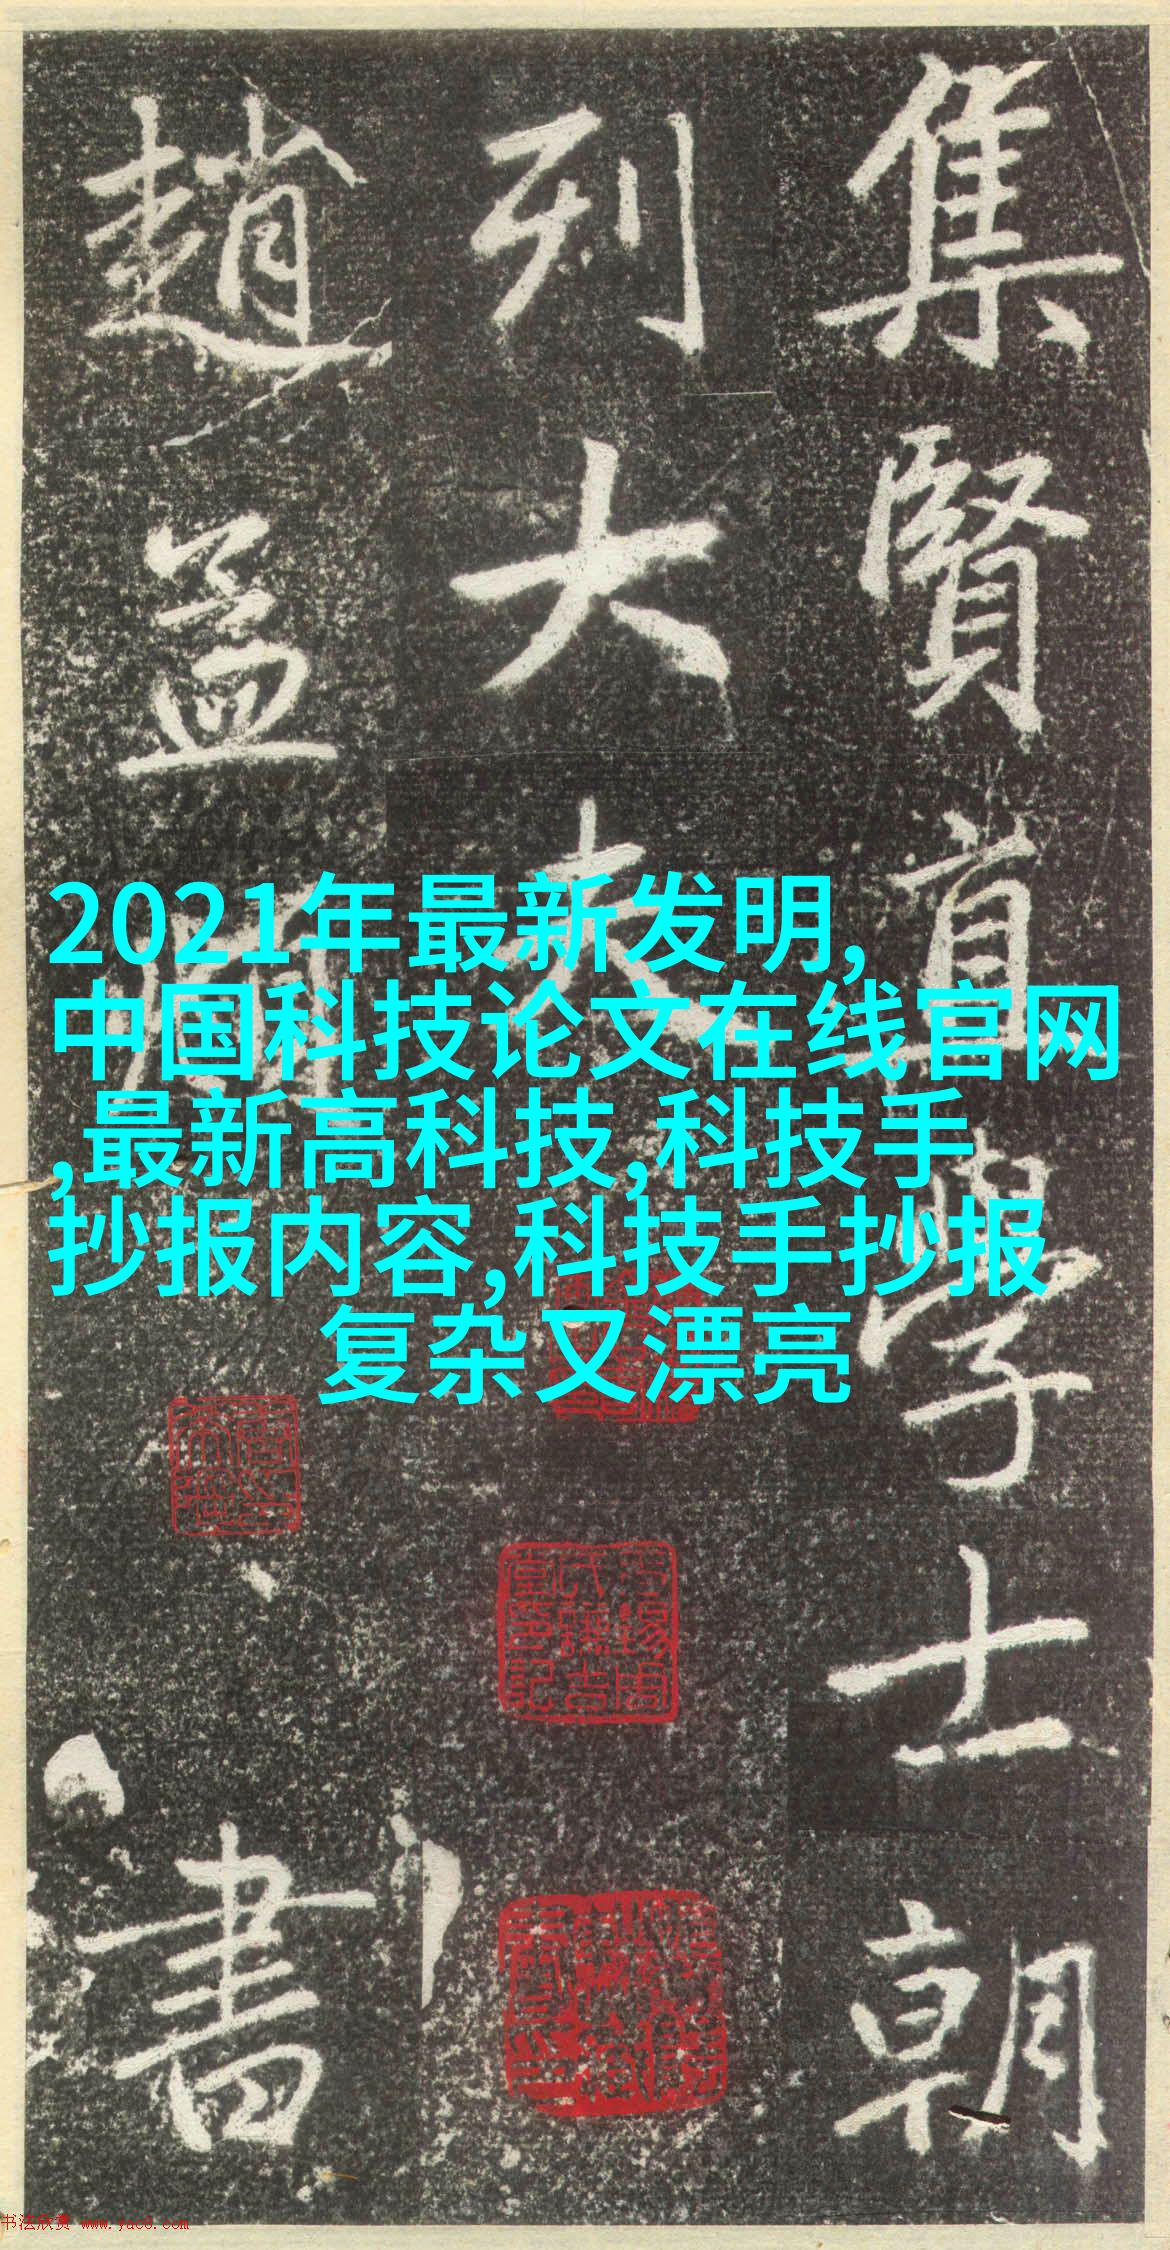 集賢直學士朝
列大夫
趙孟頫
書
2021年最新发明,
中国科技论文在线官网
,最新高科技,科技手
抄报内容,科技手抄报
复杂又漂亮
书法欣赏 www.yac8.com